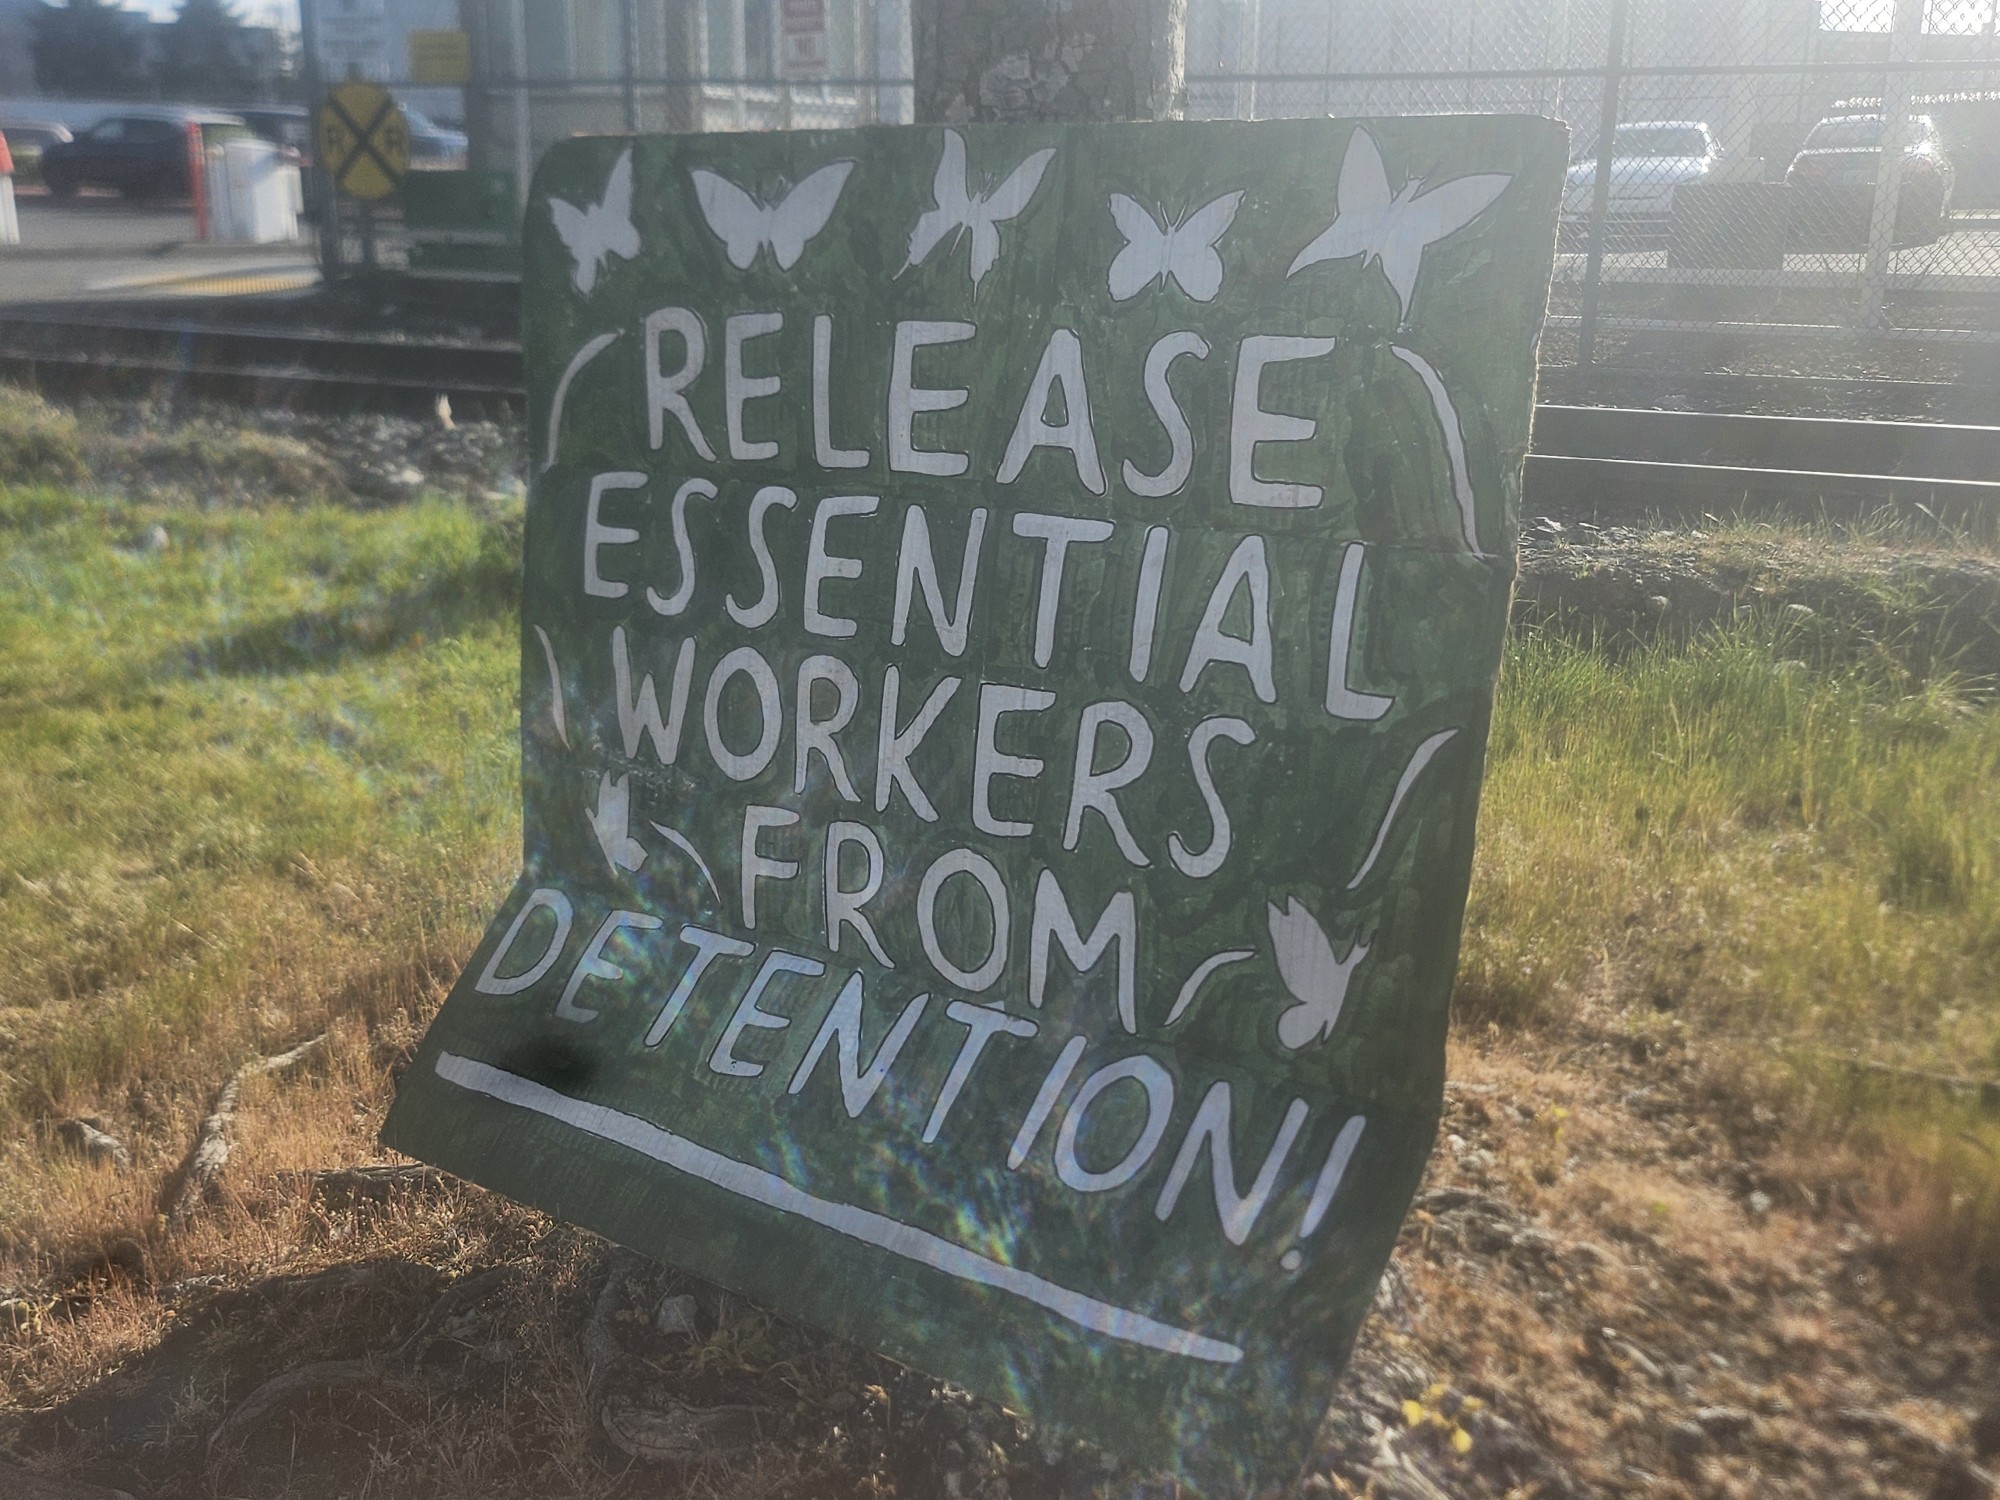 RELEASE
ESSENTIAL
WORKERS
FROM
DETENTION!
R R